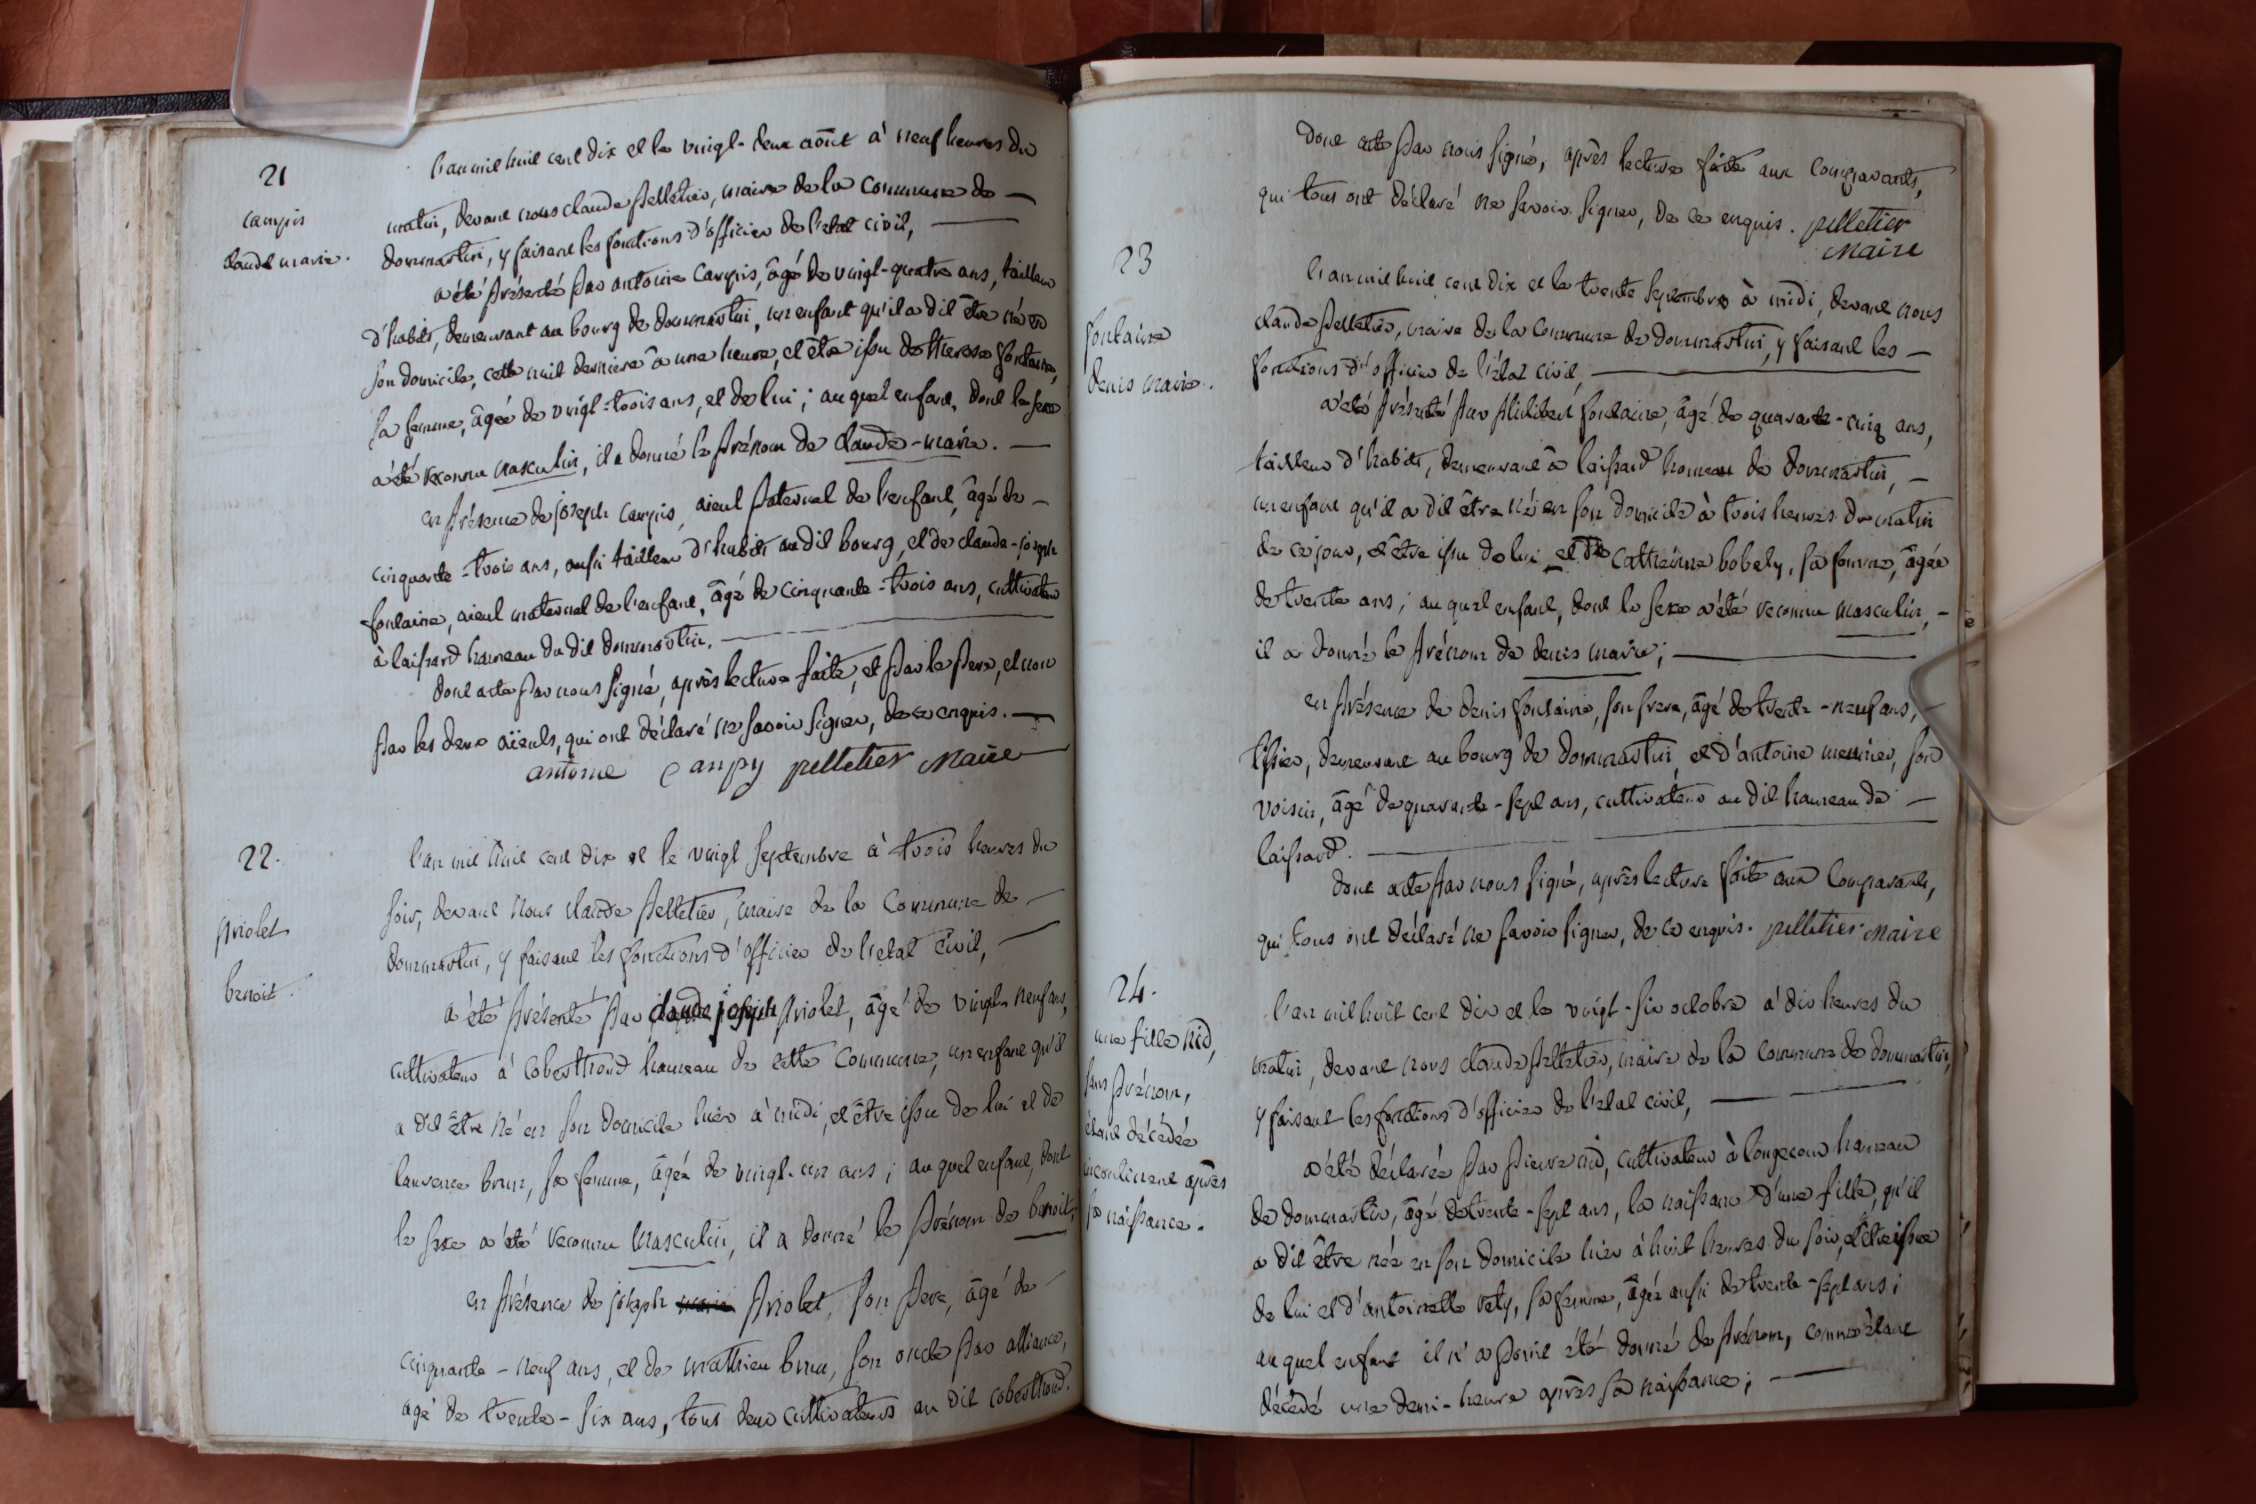 21
campis
claude marie.
l'an mil huit cent dix et le vingt-deux août à neuf heures du
matin, devant nous claude pelletier, maire de la commune de —
dommartin, y faisant les fonctions d'officier de l'etat civil, —
a été présenté par antoine campis, âgé de vingt-quatre ans, tailleur
d'habits, demeurant au bourg de dommartin, un enfant qu'il a dit être né en
son domicile, cette nuit derniere à une heure, et être issu de therese fontaine,
sa femme, âgée de vingt-trois ans, et de lui; au quel enfant, dont le sexe
a été reconnu masculin, il a donné le prénom de claude-marie. —
en présence de joseph campis, aieul paternel de l'enfant, âgé de —
cinquante-trois ans, aussi tailleur d'habits au dit bourg, et de claude-joseph
fontaine, aieul maternel de l'enfant, âgé de cinquante-trois ans, cultivateur
à laissard hameau du dit dommartin. —
dont acte par nous signé, après lecture faite, et par le pere, et non
par les deux aïeuls, qui ont déclaré ne savoir signer, de ce enquis. —
antoine campy pelletier Maire
22.
priolet
benoit.
l'an mil huit cent dix et le vingt septembre à trois heures du
soir, devant nous claude pelletier, maire de la commune de —
dommartin, y faisant les fonctions d'officier de l'etat civil, —
a été présenté par claude joseph priolet, âgé de vingt-neuf ans,
cultivateur à coberthoud hameau de cette commune, un enfant qu'il
a dit être né en son domicile hier à midi, et être issu de lui et de
laurence brun, sa femme, âgée de vingt-un ans; au quel enfant, dont
le sexe a été reconnu masculin, il a donné le prénom de benoit;
en présence de joseph priolet, son pere, âgé de —
cinquante-neuf ans, et de mathieu brun, son oncle par alliance,
âgé de trente-six ans, tous deux cultivateurs au dit coberthoud.
dont acte par nous signé, après lecture faite aux comparants,
qui tous ont déclaré ne savoir signer, de ce enquis. pelletier
Maire
23
fontaine
denis marie.
l'an mil huit cent dix et le trente septembre à midi, devant nous
claude pelletier, maire de la commune de dommartin, y faisant les —
fonctions d'officier de l'état civil, —
a été présenté par philibert fontaine, âgé de quarante-cinq ans,
tailleur d'habits, demeurant à laissard hameau de dommartin, —
un enfant qu'il a dit être né en son domicile à trois heures du matin
de ce jour, et être issu de lui et de Catherine bobely, sa femme, âgée
de trente ans; au quel enfant, dont le sexe a été reconnu masculin, —
il a donné le prénom de denis marie; —
en présence de denis fontaine, son frere, âgé de trente-neuf ans, —
tissier, demeurant au bourg de dommartin, et d'antoine meunier, son
voisin, âgé de quarante-sept ans, cultivateur au dit hameau de —
laissard. —
dont acte par nous signé, après lecture faite aux comparants,
qui tous ont déclaré ne savoir signer, de ce enquis. pelletier Maire
24.
une fille nid,
sans prénom,
étant décédée
incontinent après
sa naissance.
l'an mil huit cent dix et le vingt-six octobre à dix heures du
matin, devant nous claude pelletier, maire de la commune de dommartin,
y faisant les fonctions d'officier de l'etat civil, —
a été déclarée par pierre nid, cultivateur à longecour hameau
de dommartin, âgé de trente-sept ans, la naissance d'une fille, qu'il
a dit être née en son domicile hier à huit heures du soir, et être issue
de lui et d'antoinette vely, sa femme, âgée aussi de trente-sept ans;
au quel enfant il n'a point été donné de prénom, comme étant
décédé une demi-heure après sa naissance; —